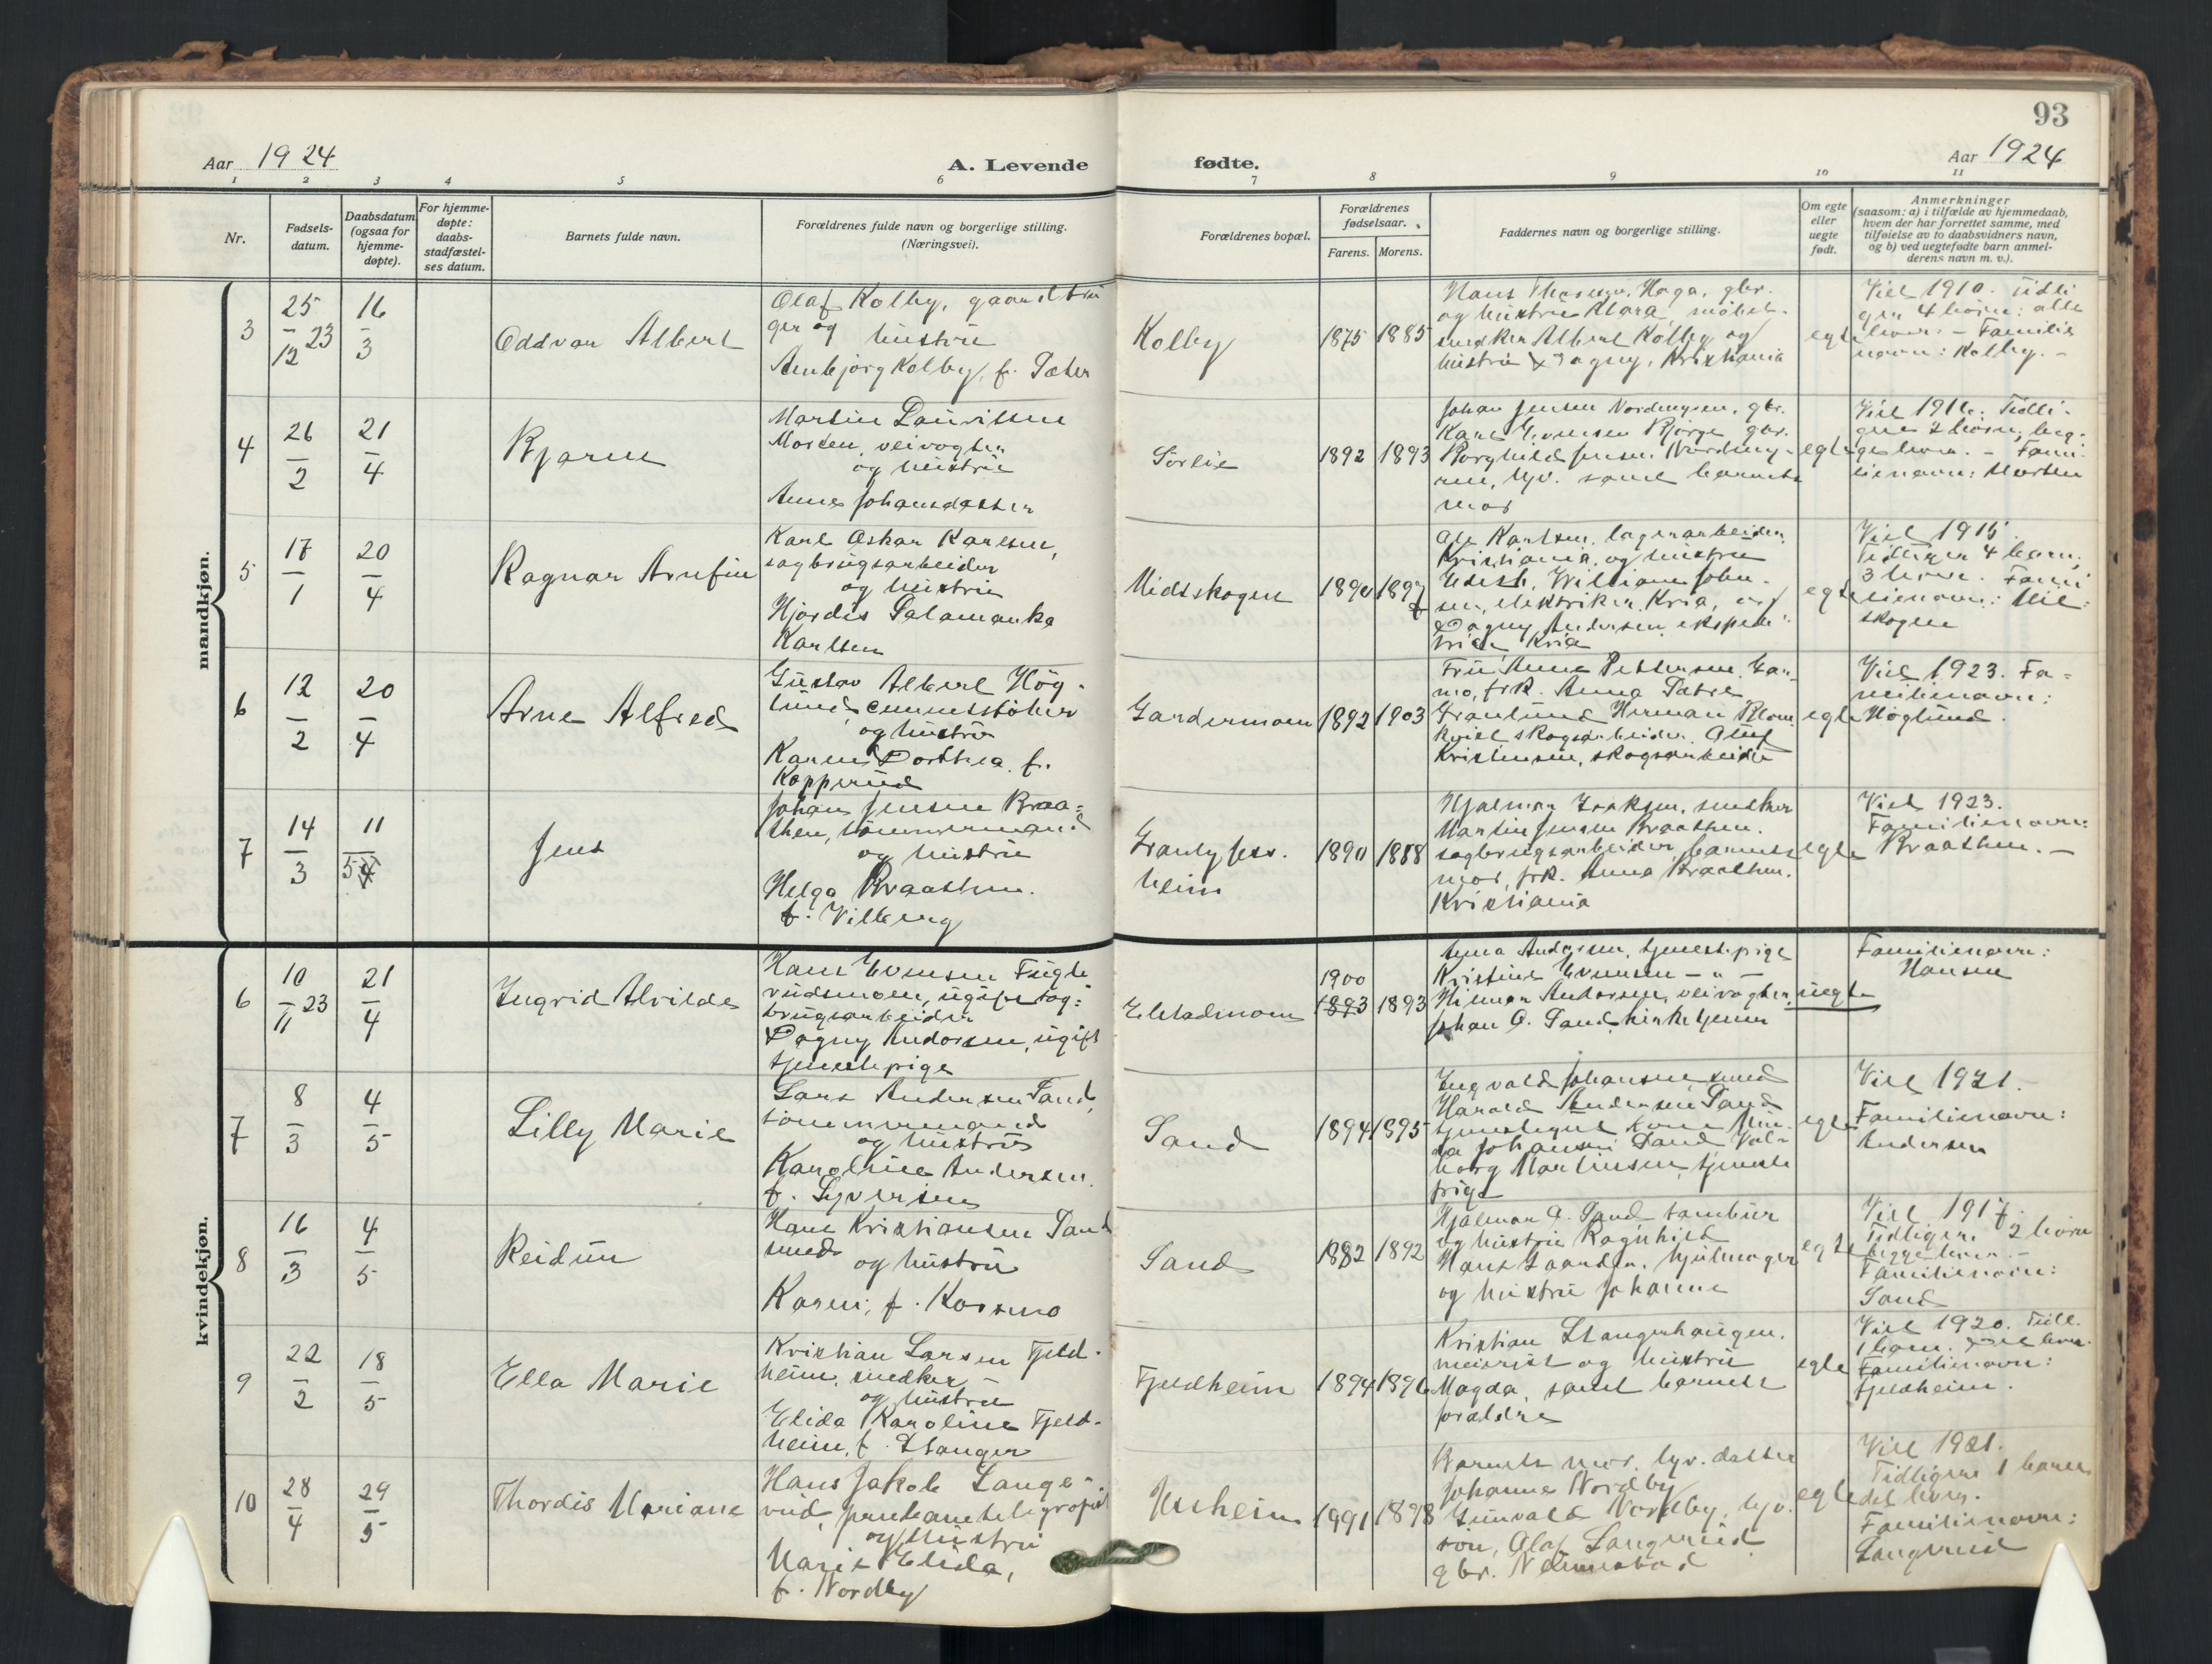 93
Aar 1924
A. Levende
fødte.
Aar 1924
1 2 3 4 5 6 7 8 9 10 11
Nr.
Fødsels-
datum.
Daabsdatum
(ogsaa for
hjemme-
døpte).
For hjemme-
døpte:
daabs-
stadfæstel-
ses datum.
Barnets fulde navn.
Forældrenes fulde navn og borgerlige stilling.
(Næringsvei).
Forældrenes bopæl.
Forældrenes
fødselsaar.
Farens. Morens.
Faddernes navn og borgerlige stilling.
Om egte
eller
uegte
født.
Anmerkninger
(saasom: a) i tilfælde av hjemmedaab,
hvem der har forrettet samme, med
tilføielse av to daabsvidners navn,
og b) ved uegtefødte barn anmel-
derens navn m. v.).
mandkjøn.
3
25/12 23
16/3
Oddvar Albert
Olaf Kolby, gaardbru
ger og hustru
Arnbjørg Kolby, f. Sæter
Kolby
1875 1885
Hans Haga, gbr.
og hustru Klara, møbel-
snedker Albert Kolby og
hustru Dagny, Kristiania
egte
Viet 1910. Tidli
gere 4 børn: alle
lever. - Familie
navn: Kolby. -
4
26/2
21/4
Bjarne
Martin Lauritsen
Morten, veivogter
og hustru
Anna Johansdatter
Sørlie
1892 1893
Johan Jensen Nordengen, gbr.
Karl Evensen Bjørge gbr.
Borghild Jensen Norden-
gen, tjv. samt barnets
mor
egte
Viet 1916. Tidli-
gere 2 børn, beg-
ge lever. - Fami-
lienavn: Morten
5
17/1
20/4
Ragnar Arnfin
Karl Oskar Karlsen,
sagbrugsarbeider
og hustru
Hjørdis Salamanka
Karlsen
Midtskogen
1890 1897
Ole Karlsen, lagerarbeider,
Kristiania, og hustru
Edith, William John-
sen, elektriker, Kria, og
Dagny Andersen, ekspedi-
trice, Kria
egte
Viet 1915.
Tidligere 4 barn,
3 lever. Fami
lienavn: Mid-
skogen
6
12/2
20/4
Arne Alfred
Gustav Albert Hög-
lund,
og hustru
Karen Dorthea f.
Kopperud
Gardermoen
1892 1903
Fru Anna Pettersen, Gar-
mo, frk. Anna Sætre
Granlund Herman Blom
kvist skogsarbeider, Oluf
Kristiansen, skogsarbeider
egte
Viet 1923. Fa-
milienavn:
Høglund.
7
14/3
11/5
Jens
Johan Jensen Braa-
then, tømmermand
og hustru
Helga Braathen.
f. Vilberg
Granly
heim
1890 1888
Hjalmar Isaksen, snedker
Martin Jensen Braathen.
sagbrugsarbeider, barnets
mor, frk. Anna Braathen.
Kristiania
egte
Viet 1923.
Familienavn:
Braathen. -
kvindekjøn.
6
10/11 23
21/4
Ingrid Alvilde
Hans Evensen Fugle
rudsmoen, ugift sag-
brugsarbeider
Dagny Andersen, ugift
tjenestepige
Elstadmoen
1900
1893 1893
Anna Andersen, tjenestepige
Kristine Evensen - " -
Hilmar Andersen, veivogter
Johan O. Sand, kirketjener
uegte
Familienavn:
Hansen
7
8/3
4/5
Lilly Marie
Lars Andersen Sand,
tømmermand
og hustru
Karoline Andersen.
f. Syversen
Sand
1894 1895
Ingvald Johansen, smed
Harald Andersen Sand
tjenestegut, kone Min-
da Johansen Sand Val-
borg Martinsen, tjeneste
pige
egte
Viet 1921.
Familienavn:
Andersen
8
16/3
4/5
Reidun
Hans Kristiansen Sand
smed og hustru
Karen, f. Kosmo
Sand
1882 1892
Hjalmar O. Sand, tambur
og hustru Ragnhild
Hans Gaarder, hjulmager
og hustru Johanne
egte
Viet 1917.
Tidligere 2 børn
begge lever. -
Familienavn:
Sand
9
22/2
18/5
Ella Marie
Kristian Larsen Fjeld-
heim, snedker
og hustru
Elida Karoline Fjeld-
heim, f. Stanger
Fjeldheim
1894 1896
Kristian Stangerhaugen.
meierist og hustru
Magda, samt barnets
forældre
egte
Viet 1920. Tidl.
1 barn. Det lever.
Familienavn:
Fjeldheim.
10
28/4
29/5
Thordis Mariane
Hans Jakob Lange-
rud, jernbanetelegrafist
og hustru
Marie Elida,
f. Nordby
1991 1898
Barnets mor, tjv. datter
Johanne Nordby
Gunvald Nordby, tjv.
søn, Olaf Langerud
gbr. Nannestad
egte
Viet 1921.
Tidligere 1 barn
det lever.
Familienavn:
Langerud